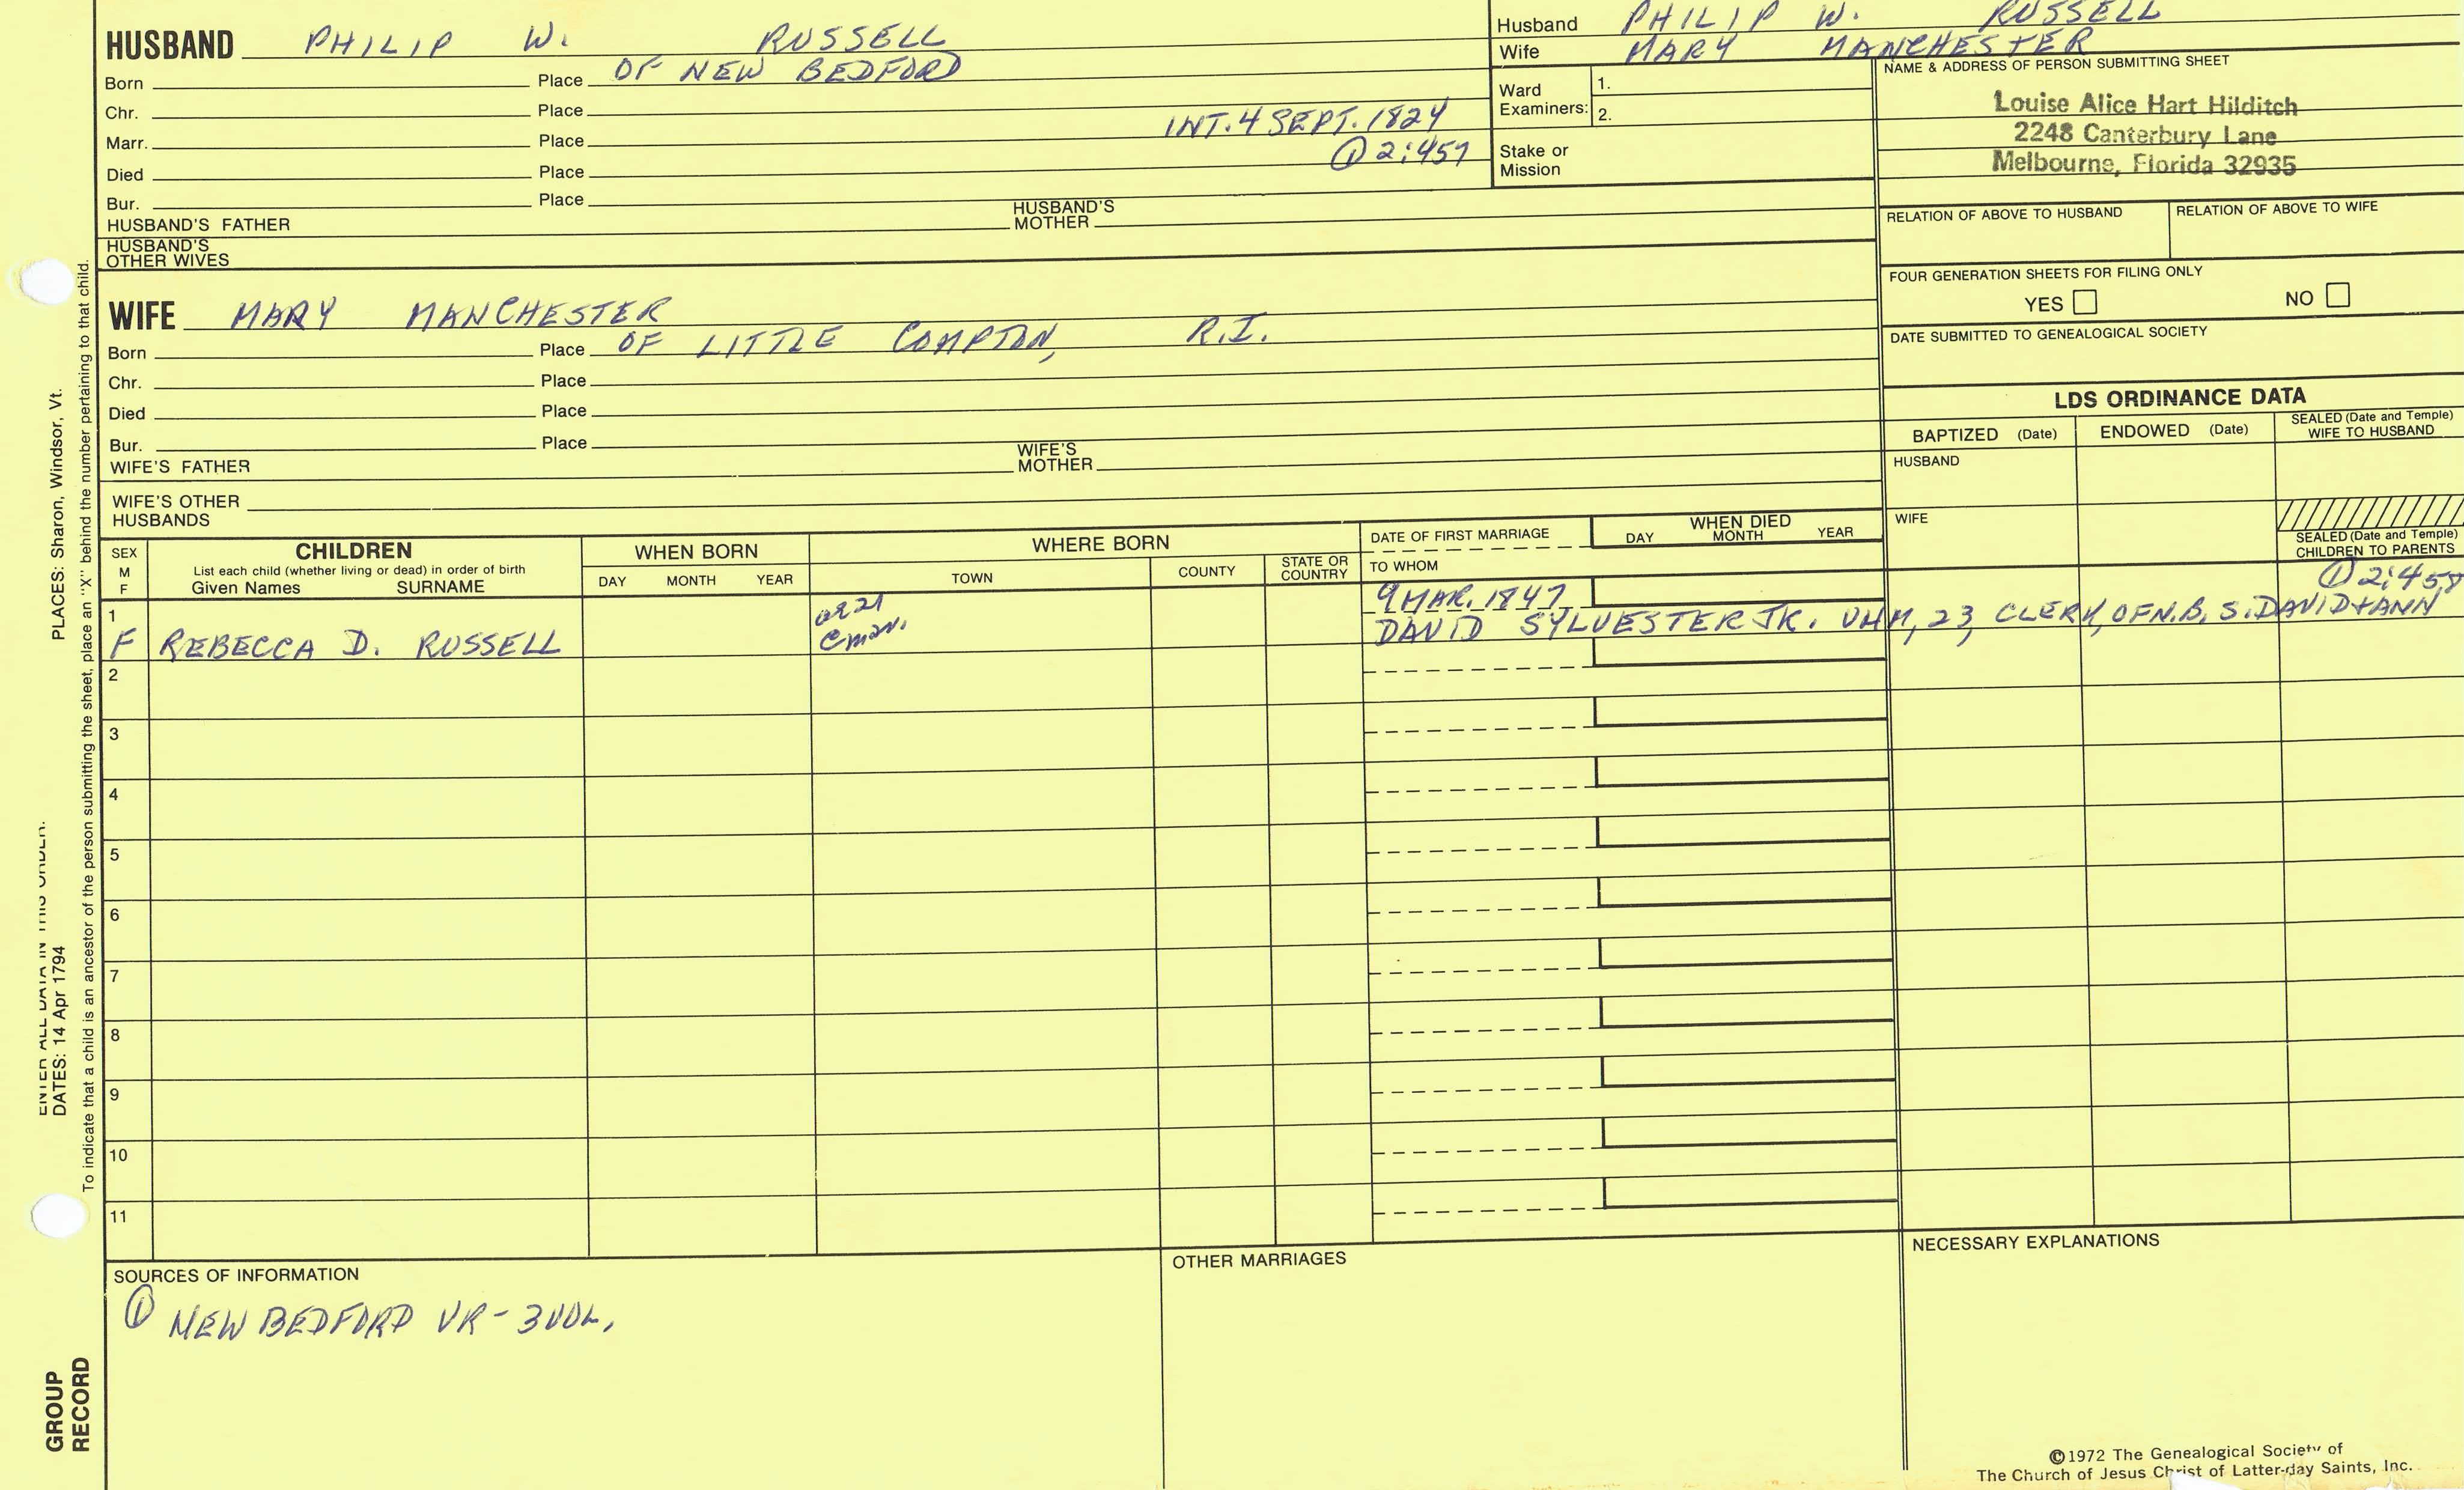 HUSBAND PHILIP W. RUSSELL
Born Place OF NEW BEDFORD
Chr. Place
INT. 4 SEPT. 1824
Marr. Place
① 2:457
Died Place
Bur. Place
HUSBAND'S FATHER HUSBAND'S MOTHER
HUSBAND'S
OTHER WIVES
Husband PHILIP W. RUSSELL
Wife MARY MANCHESTER
Ward
Examiners: 1.
2.
Stake or
Mission
NAME & ADDRESS OF PERSON SUBMITTING SHEET
Louise Alice Hart Hilditch
2248 Canterbury Lane
Melbourne, Florida 32935
RELATION OF ABOVE TO HUSBAND RELATION OF ABOVE TO WIFE
FOUR GENERATION SHEETS FOR FILING ONLY
YES NO
DATE SUBMITTED TO GENEALOGICAL SOCIETY
WIFE MARY MANCHESTER
Born Place OF LITTLE COMPTON, R.I.
Chr. Place
Died Place
Bur. Place
WIFE'S FATHER WIFE'S MOTHER
WIFE'S OTHER
HUSBANDS
LDS ORDINANCE DATA
BAPTIZED (Date) ENDOWED (Date) SEALED (Date and Temple)
WIFE TO HUSBAND
HUSBAND
WIFE
SEALED (Date and Temple)
CHILDREN TO PARENTS
SEX
M
F
CHILDREN
List each child (whether living or dead) in order of birth
Given Names SURNAME
WHEN BORN
DAY MONTH YEAR
WHERE BORN
TOWN COUNTY STATE OR
COUNTRY
DATE OF FIRST MARRIAGE
TO WHOM
WHEN DIED
DAY MONTH YEAR
1 9 MAR. 1847 ① 2:458
F REBECCA D. RUSSELL DAVID SYLVESTER JR. UHM, 23, CLERK, OF N.B. S. DAVID + ANN
2
3
4
5
6
7
8
9
10
11
SOURCES OF INFORMATION
① NEW BEDFORD VR - 3 VOL.
OTHER MARRIAGES
NECESSARY EXPLANATIONS
©1972 The Genealogical Society of
The Church of Jesus Christ of Latter-day Saints, Inc.
ENTER ALL DATA IN THIS ORDER:
DATES: 14 Apr 1794
PLACES: Sharon, Windsor, Vt.
To indicate that a child is an ancestor of the person submitting the sheet, place an "X" behind the number pertaining to that child.
GROUP
RECORD